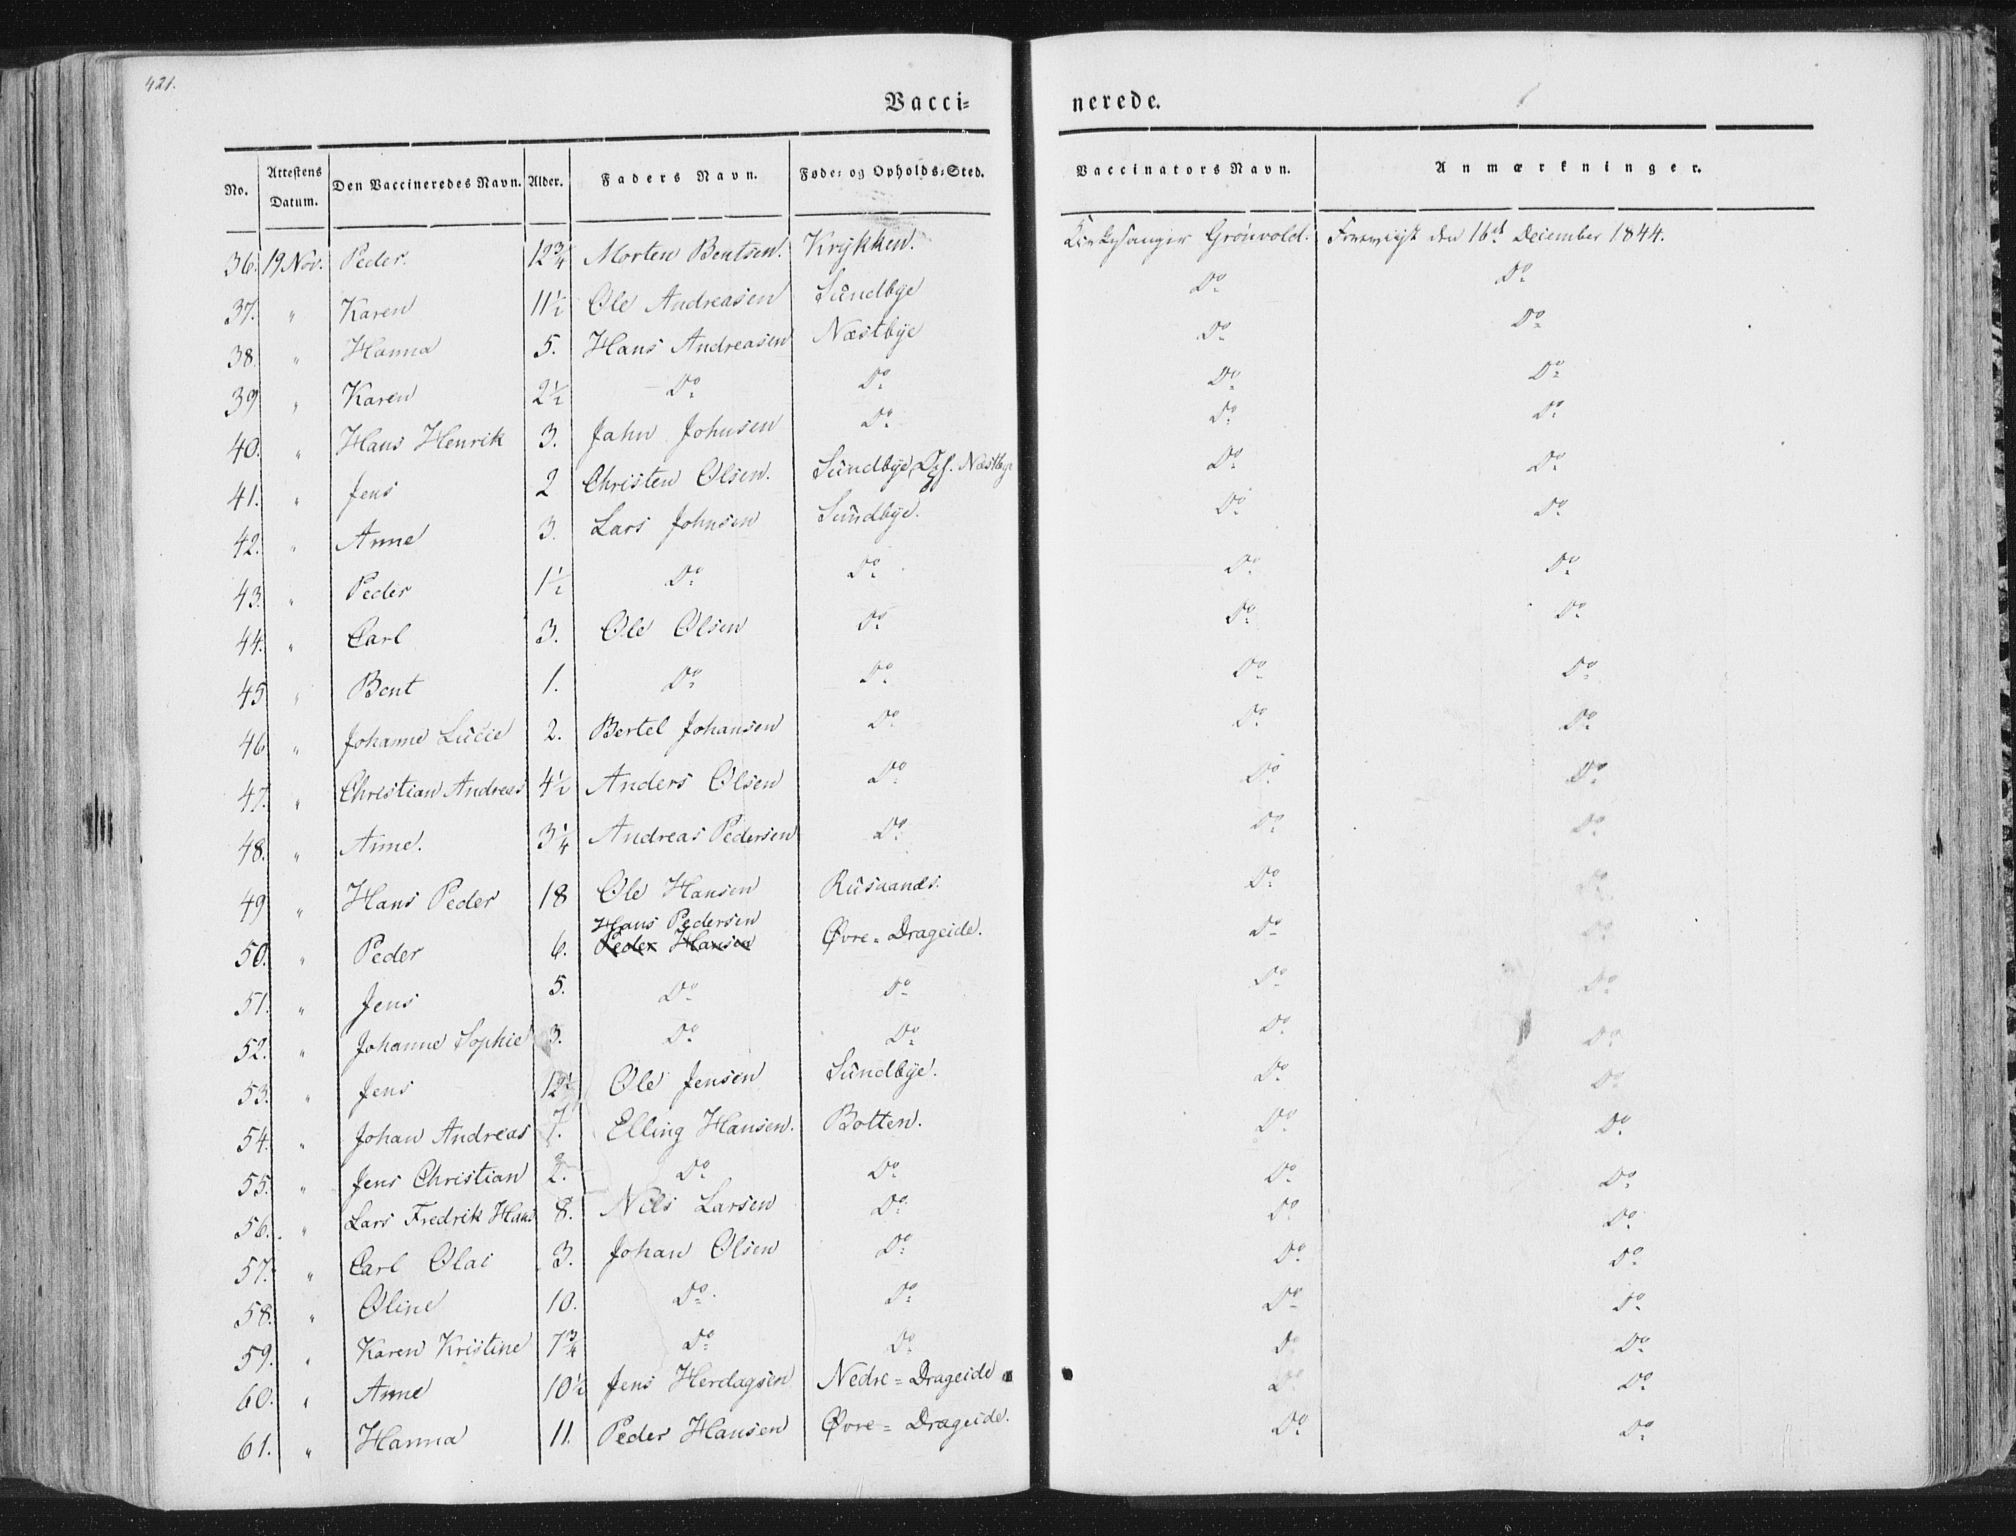 421.
Vacci= nerede.
No. | Attestens Datum. | Den Vaccineredes Navn. | Alder. | Faders Navn. | Føde= og Opholds=Sted. | Vaccinators Navn. | Anmærkninger.
36. 19 Nov. Peder. 12¾ Morten Bentsen. Krykken. Kirkesanger Grönvold. Foreviist den 16de December 1844.
37. " Karen 11½ Ole Andreasen Sundbye Do Do
38. " Hanna 5. Hans Andreasen Næstbye Do Do
39 " Karen 2½ Do Do Do Do
40. " Hans Henrik 3. Jahn Johnsen Do Do Do
41. " Jens 2 Christen Olsen. Sundbye, Næstbye Do Do
42. " Anne 3. Lars Johnsen Sundbye. Do Do
43. " Peder 1½ Do Do Do Do
44. " Carl 3. Ole Olsen Do Do Do
45 " Bent 1. Do Do Do Do
46 " Johanne Lucie 2. Bertel Johansen Do Do Do
47. " Christian Andreas 4½ Anders Olsen Do Do Do
48. " Anne. 3¼ Andreas Pedersen Do Do Do
49 " Hans Peder 18 Ole Hansen Rusnanes. Do Do
Hans Pedersen
50. " Peder 6. Peder Hansen Øvre=Drageide. Do Do
51. " Jens 5. Do Do Do Do
52. " Johanne Sophie 3. Do Do Do Do
53. " Jens 12½ Ole Jensen Sundbye. Do Do
54. " Johan Andreas 7. Elling Hansen. Botten. Do Do
55. " Jens Christian 2. Do Do Do Do
56. " Lars Fredrik Hans 8. Nils Larsen Do Do Do
57. " Carl Olai 3. Johan Olsen Do Do Do
58. " Oline 10. Do Do Do Do
59. " Karen Kristine 7¾ Do Do Do Do
60. " Anne 10½ Jens Herdagsen Nedre=Drageide Do Do
61. " Hanna 11. Peder Hansen Øvre=Drageide. Do Do